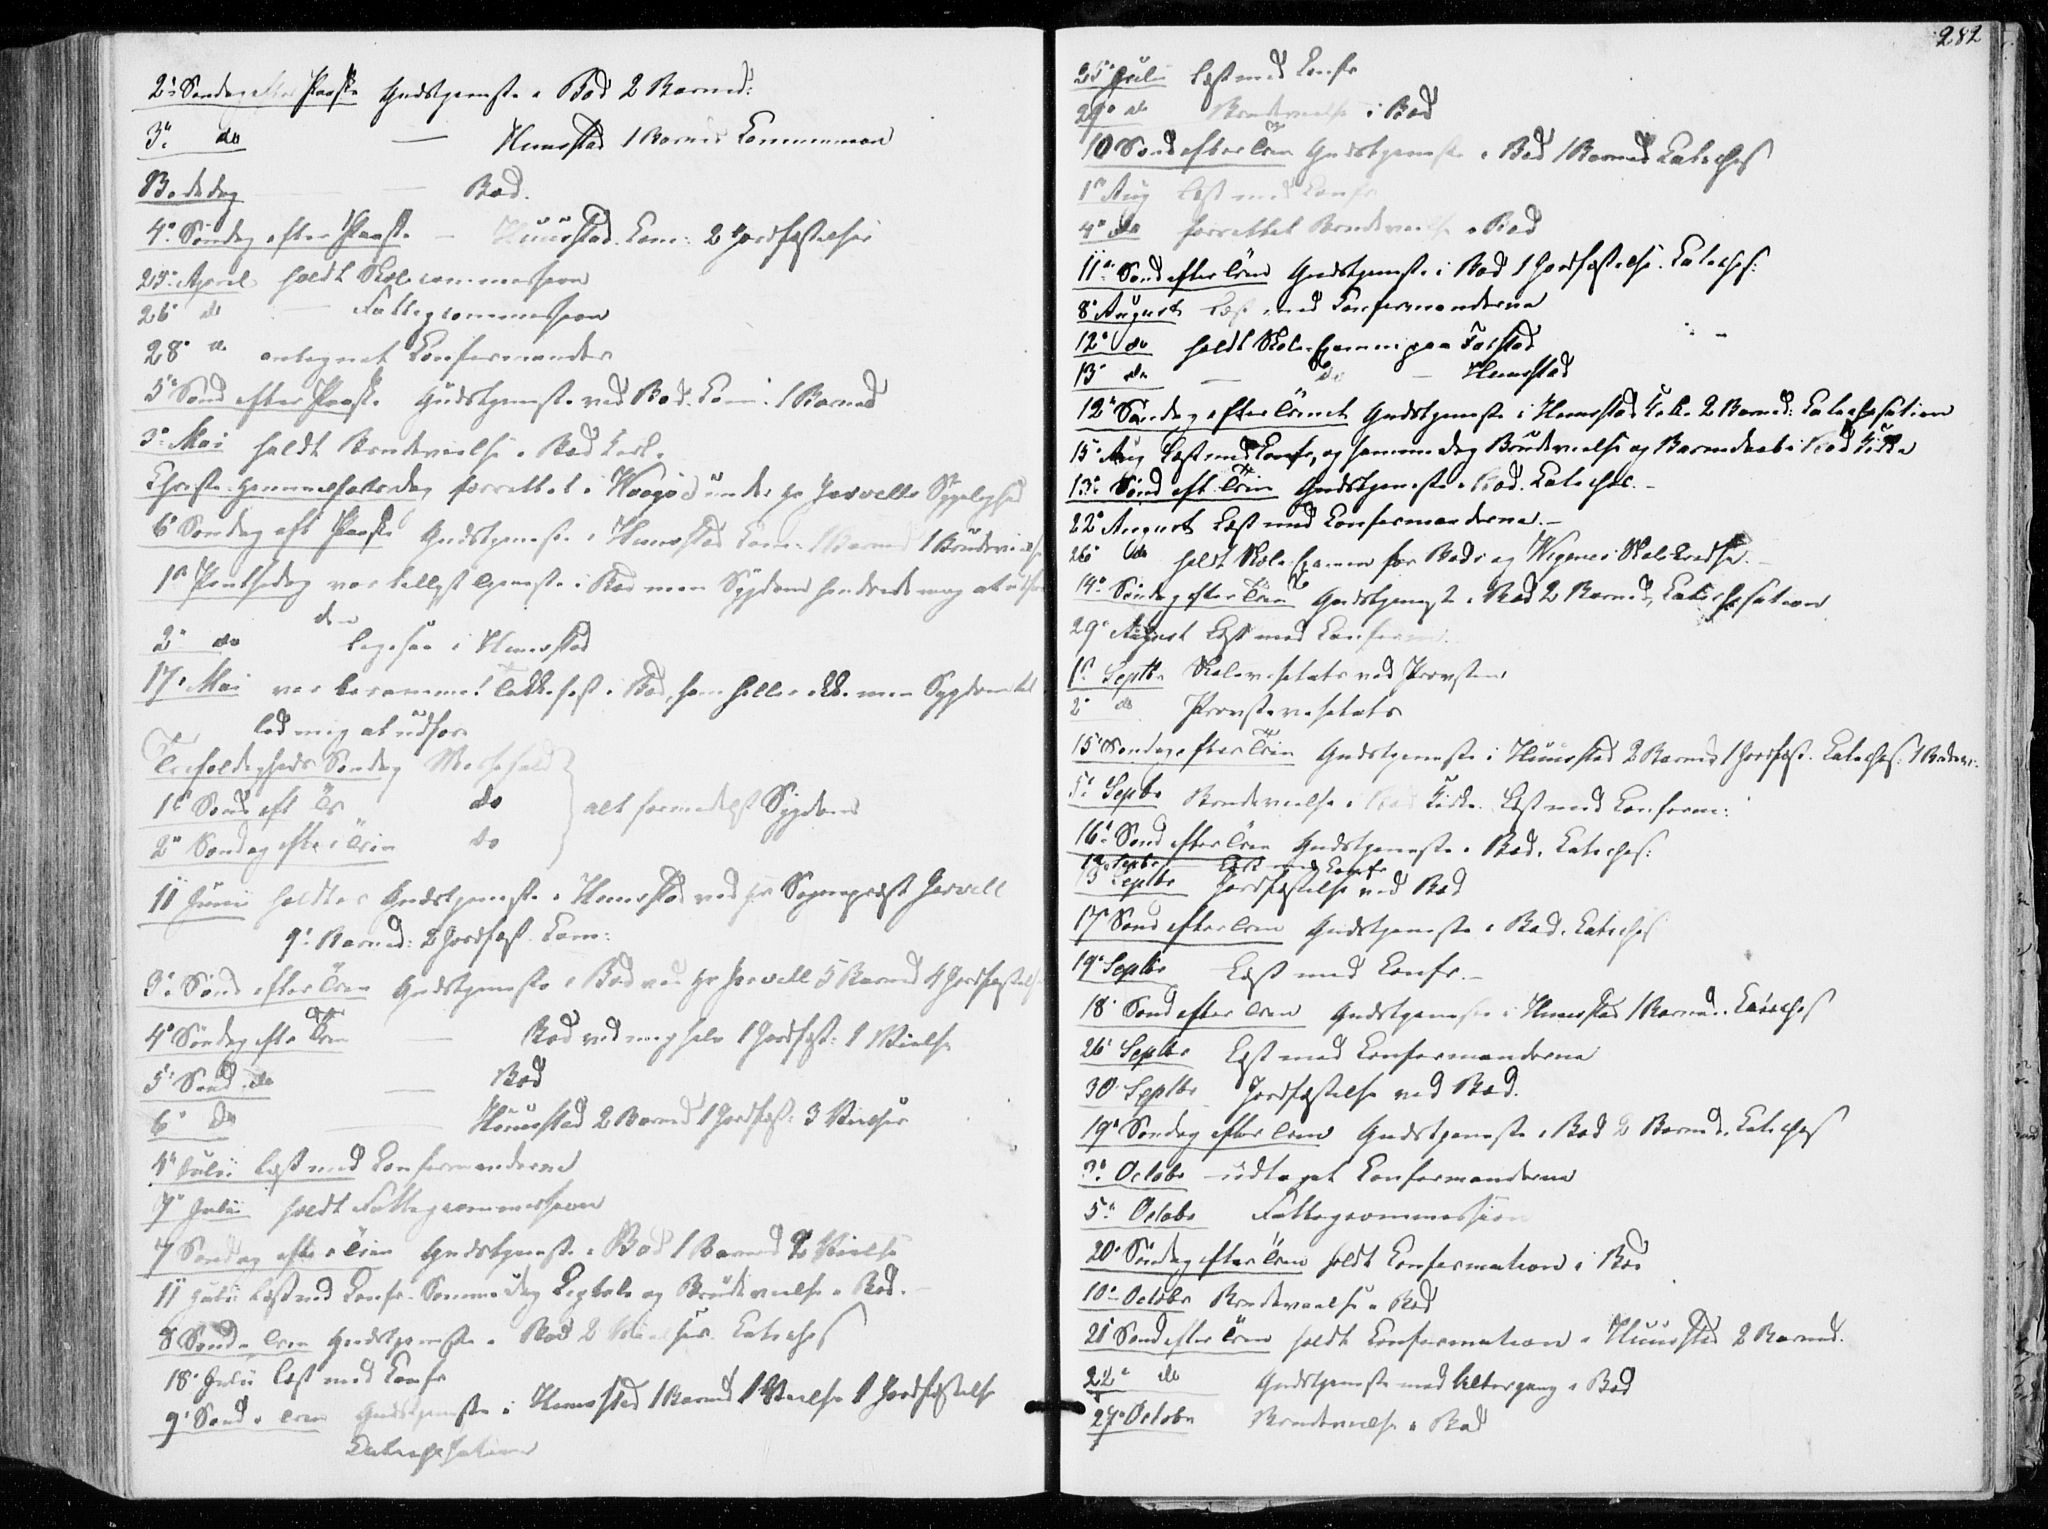 2den Søndag efter Paaske Gudstjeneste i Bod 2 Barned:
3die do — Huustad 1 Barned Communion
Bededag — — Bod.
4de Søndag efter Paaske — Huustad. Com: 2 Jordfæstelser
25de April holdt Skolecommission
26 do — Fattigcommission
28 do antegnet Confirmander
5te Sønd efter Paaske Gudstjeneste ved Bod. Com: 1 Barned
3die Mai holdt Brudevielse i Bod Kirke
Christi Himmelfartsdag forrettet i Waagø under Hr Jervells Sygelighed
6te Søndag eft Paaske Gudstjeneste i Huustad Com: 1 Barned 1 Brudevielse
1ste Pintsedag var bellyst Tjeneste i Bod men Sygdom hindrede mig at udføre
den
2den do ligesaa i Huustad
17de Mai var berammet Takkefest i Bod, som heller ikke min Sygdom til
lod mig at udføre
Trefoldigheds Søndag Messefald
1ste Sønd eft Tr do alt formedelst Sygdom
2den Søndag efter Trin do
11 Junii holdtes Gudstjeneste i Huustad ved Hr Sognepræst Jervell
9 Barned: 2 Jordfæst. Com:
3die Sønd efter Trin Gudstjeneste i Bod ved Hr Jervell 5 Barned 4 Jordfæstelser
4de Søndag efter Trin — Bod ved mig selv 1 Jordfæst: 1 Vielse
5te Sønd do — Bod
6te do — Huustad 2 Barned 1 Jordfæst: 3 Vielser
4de Julii læst med Confirmanderne
7de Julii holdt Fattigcommission
7 Søndag efter Trin Gudstjeneste i Bod 1 Barned 2 Vielse
11 Julii læst med Confr. Samme Dag og Brudevielse i Bod.
8 Sønd e Trin Gudstjeneste i Bod 2 Vielser. Cateches
18de Julii læst med Confr
9de Sønd e Trin Gudstjeneste i Huustad 1 Barned 1 Vielse 1 Jordfæstelse
Catechisation
282
25de Julii læst med Confr
29de do Brudevielse i Bod
10 Sønd efter Trin Gudstjeneste i Bod 1 Barned Cateches
1ste Aug læst med Confr
4de do forrettet Brudevielse i Bod
11te Sønd efter Trin Gudstjeneste i Bod 1 Jordfæstelse. Cateches:
8de August læst med Confirmanderne
12te do holdt Skole Examen paa Farstad
13de do — do — Huustad
12te Søndag efter Trinit Gudstjeneste i Huustad Kirke 2 Barned: Catechisation
15de Aug læst med Confr, og samme Dag Brudevielse og Barnedaab i Bod Kirke
13de Sønd eft Trin Gudstjeneste i Bod. Cateches.—
22de August læst med Confirmanderne.—
26de do holdt Skole Examen for Bods og Wigens Skolekredse.—
14de Søndag efter Trin Gudstjeneste i Bod 2 Barned, Catechisation
29de August læst med Confirm:
1ste Septbr Skolevisitats ved Provsten
2den do Provstevisitats
15de Søndag efter Trin Gudstjeneste i Huustad 2 Barned 1 Jordfæst. Cateches: 1 Brudev:
5te Septbr Brudevielse i Bod Kirke. Læst med Confirm:
16de Sønd efter Trin Gudstjeneste i Bod. Cateches:
12 Septbr Læst med Confr
13 Septbr Jordfæstelse ved Bod
17de Sønd efter Trin Gudstjeneste i Bod. Cateches
19de Septbr Læst med Confr.—
18de Sønd efter Trin Gudstjeneste i Huustad 1 Barned. Cateches
26de Septbr Læst med Confirmanderne
30de Septbr Jordfæstelse ved Bod.
19de Søndag efter Trin Gudstjeneste i Bod 2 Barned. Cateches
3die Octobr udtaget Confirmanderne
5te Octobr Fattigcommission
20de Søndag efter Trin holdt Confirmation i Bod
10de Octobr Brudevielse i Bod
21 Sønd efter Trin holdt Confirmation i Huustad 2 Barned.
22de do Gudstjeneste med Altergang i Bod
27de Octobr Brudevielse i Bod